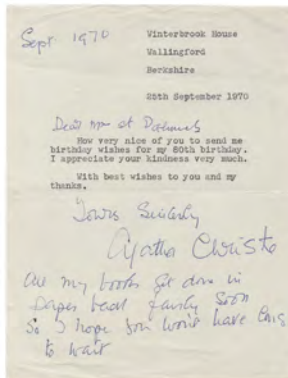 Sept 1970
Winterbrook House
Wallingford
Berkshire
25th September 1970
Dear
How very nice of you to send me
birthday wishes for my 80th birthday.
I appreciate your kindness very much.
With best wishes to you and my
thanks.
Yours Sincerely
Agatha Christie
All my books get done in
paper back fairly soon
So I hope you won't have long
to wait